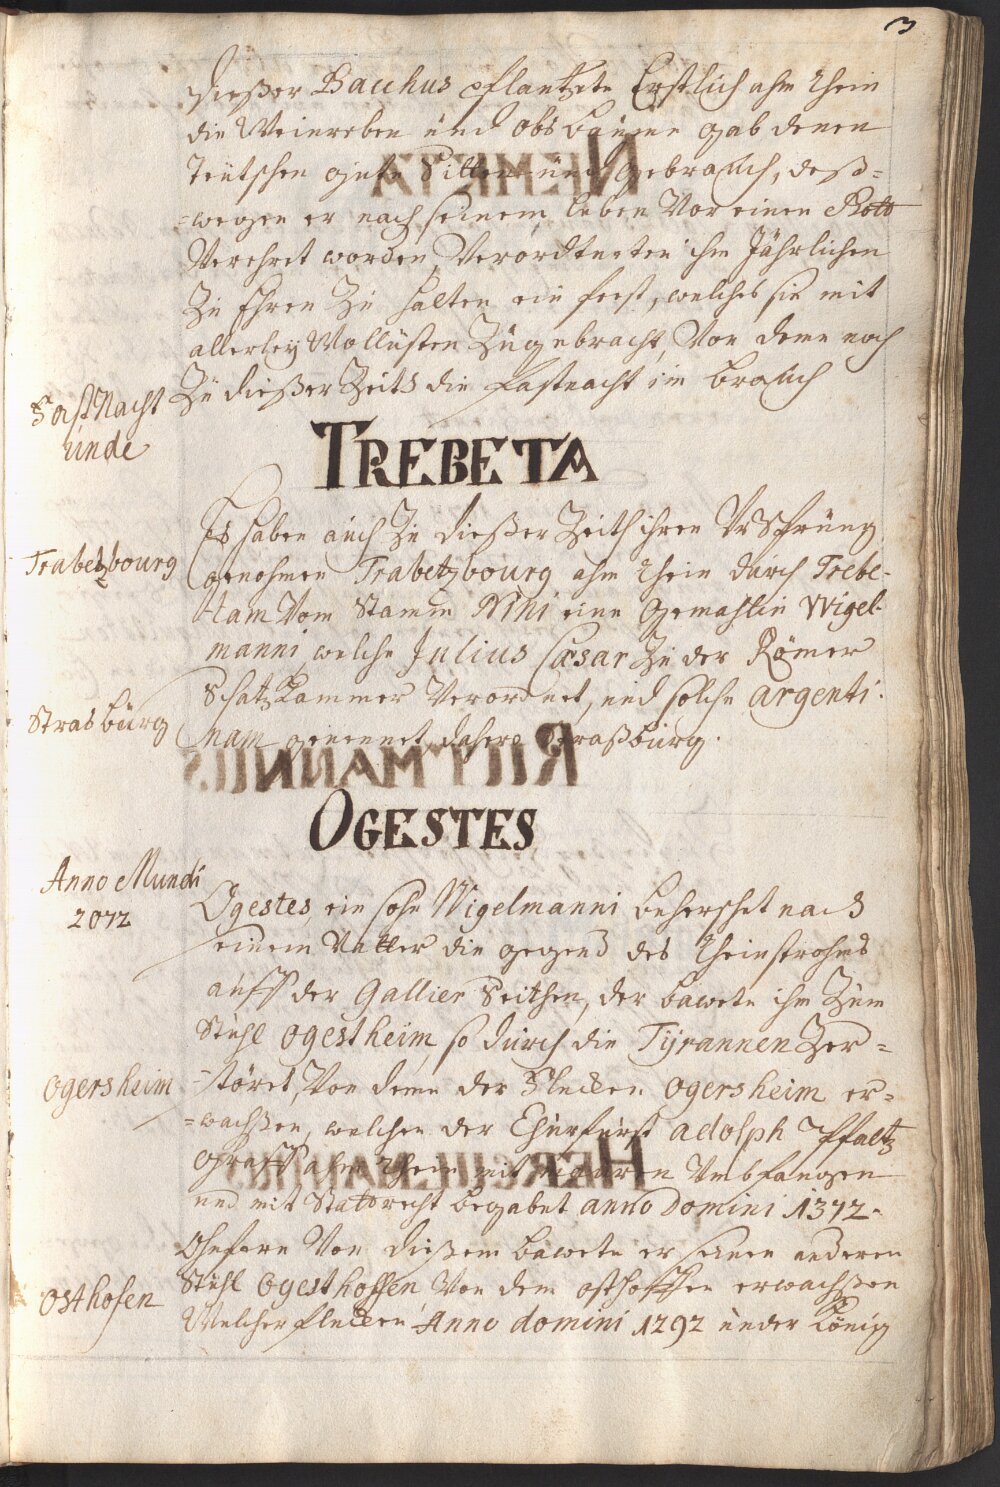 3
Dießer Bacchus pflantzte Erstlich ahm Rhein
die Weinreben und obsbäume gab denen
Teütschen gute Sitten und gebrauch, deß=
=wegen er nach seinem leben Vor einen Gott
Verehret worden, Verordtneten ihm Jährlichen
Zu Ehren Zu halten ein fest, welches sie mit
allerley Wollüsten Zugebracht, Von deme noch
Zu dießer Zeith die fastnacht im brauch
FastNacht
unde
TREBETA
Es haben auch Zu dießer Zeith ihren VrSprung
Trabetzbourg
genohmen Trabetzbourg ahm Rhein durch Trebe-
tam Vom Stamm Nini eine Gemahlin Wigel-
manni, welche Julius Cæsar Zu der Römer
Schatz Kammer Verordnet, und solche argenti-
Strasbürg
nam genennet dahero Straßburg.
OGESTES
Anno Mundi
2072
Ogestes ein sohn Wigelmanni beherschet nach
seinem Vatter die gegend des Rheinstrohms
auff der Gallier Seithen, der bawete ihm Zum
Stuhl Ogestheim, so durch die Tyrannen Zer=
Ogersheim
=störet, Von deme der Flecken Ogersheim er=
=wachßen, welchen der Churfürst adolph Pfaltz
Graff ahm Rhein mit Mauren Umbfangen
und mit Stattrecht begabet anno Domini 1372.
Ohnfern Von dießem bawete er seinen anderen
Osthofen
Stuhl Ogesthoffen, Von dem osthoffen erwachßen
Welcher flecken Anno domini 1292 under König